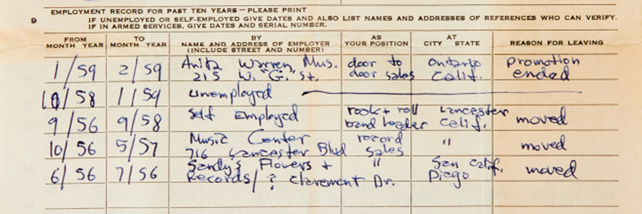 EMPLOYMENT RECORD FOR PAST TEN YEARS—PLEASE PRINT
9 IF UNEMPLOYED OR SELF-EMPLOYED GIVE DATES AND ALSO LIST NAMES AND ADDRESSES OF REFERENCES WHO CAN VERIFY.
IF IN ARMED SERVICES, GIVE DATES AND SERIAL NUMBER.
FROM TO BY AS AT
MONTH YEAR MONTH YEAR NAME AND ADDRESS OF EMPLOYER YOUR POSITION CITY STATE REASON FOR LEAVING
(INCLUDE STREET AND NUMBER)
1/59 2/59 Anita Warren Mus. door to Ontario promotion
215 W. "G." St. door sales Calif. ended
10/58 1/59 unemployed
9/56 9/58 Self Employed rock + roll Lancaster
band leader Calif. moved
10/56 5/57 Music Center record " moved
716 Lancaster Blvd sales
6/56 7/56 Sandy's Flowers + " San Calif. moved
Records/? Clairemont Dr. Diego